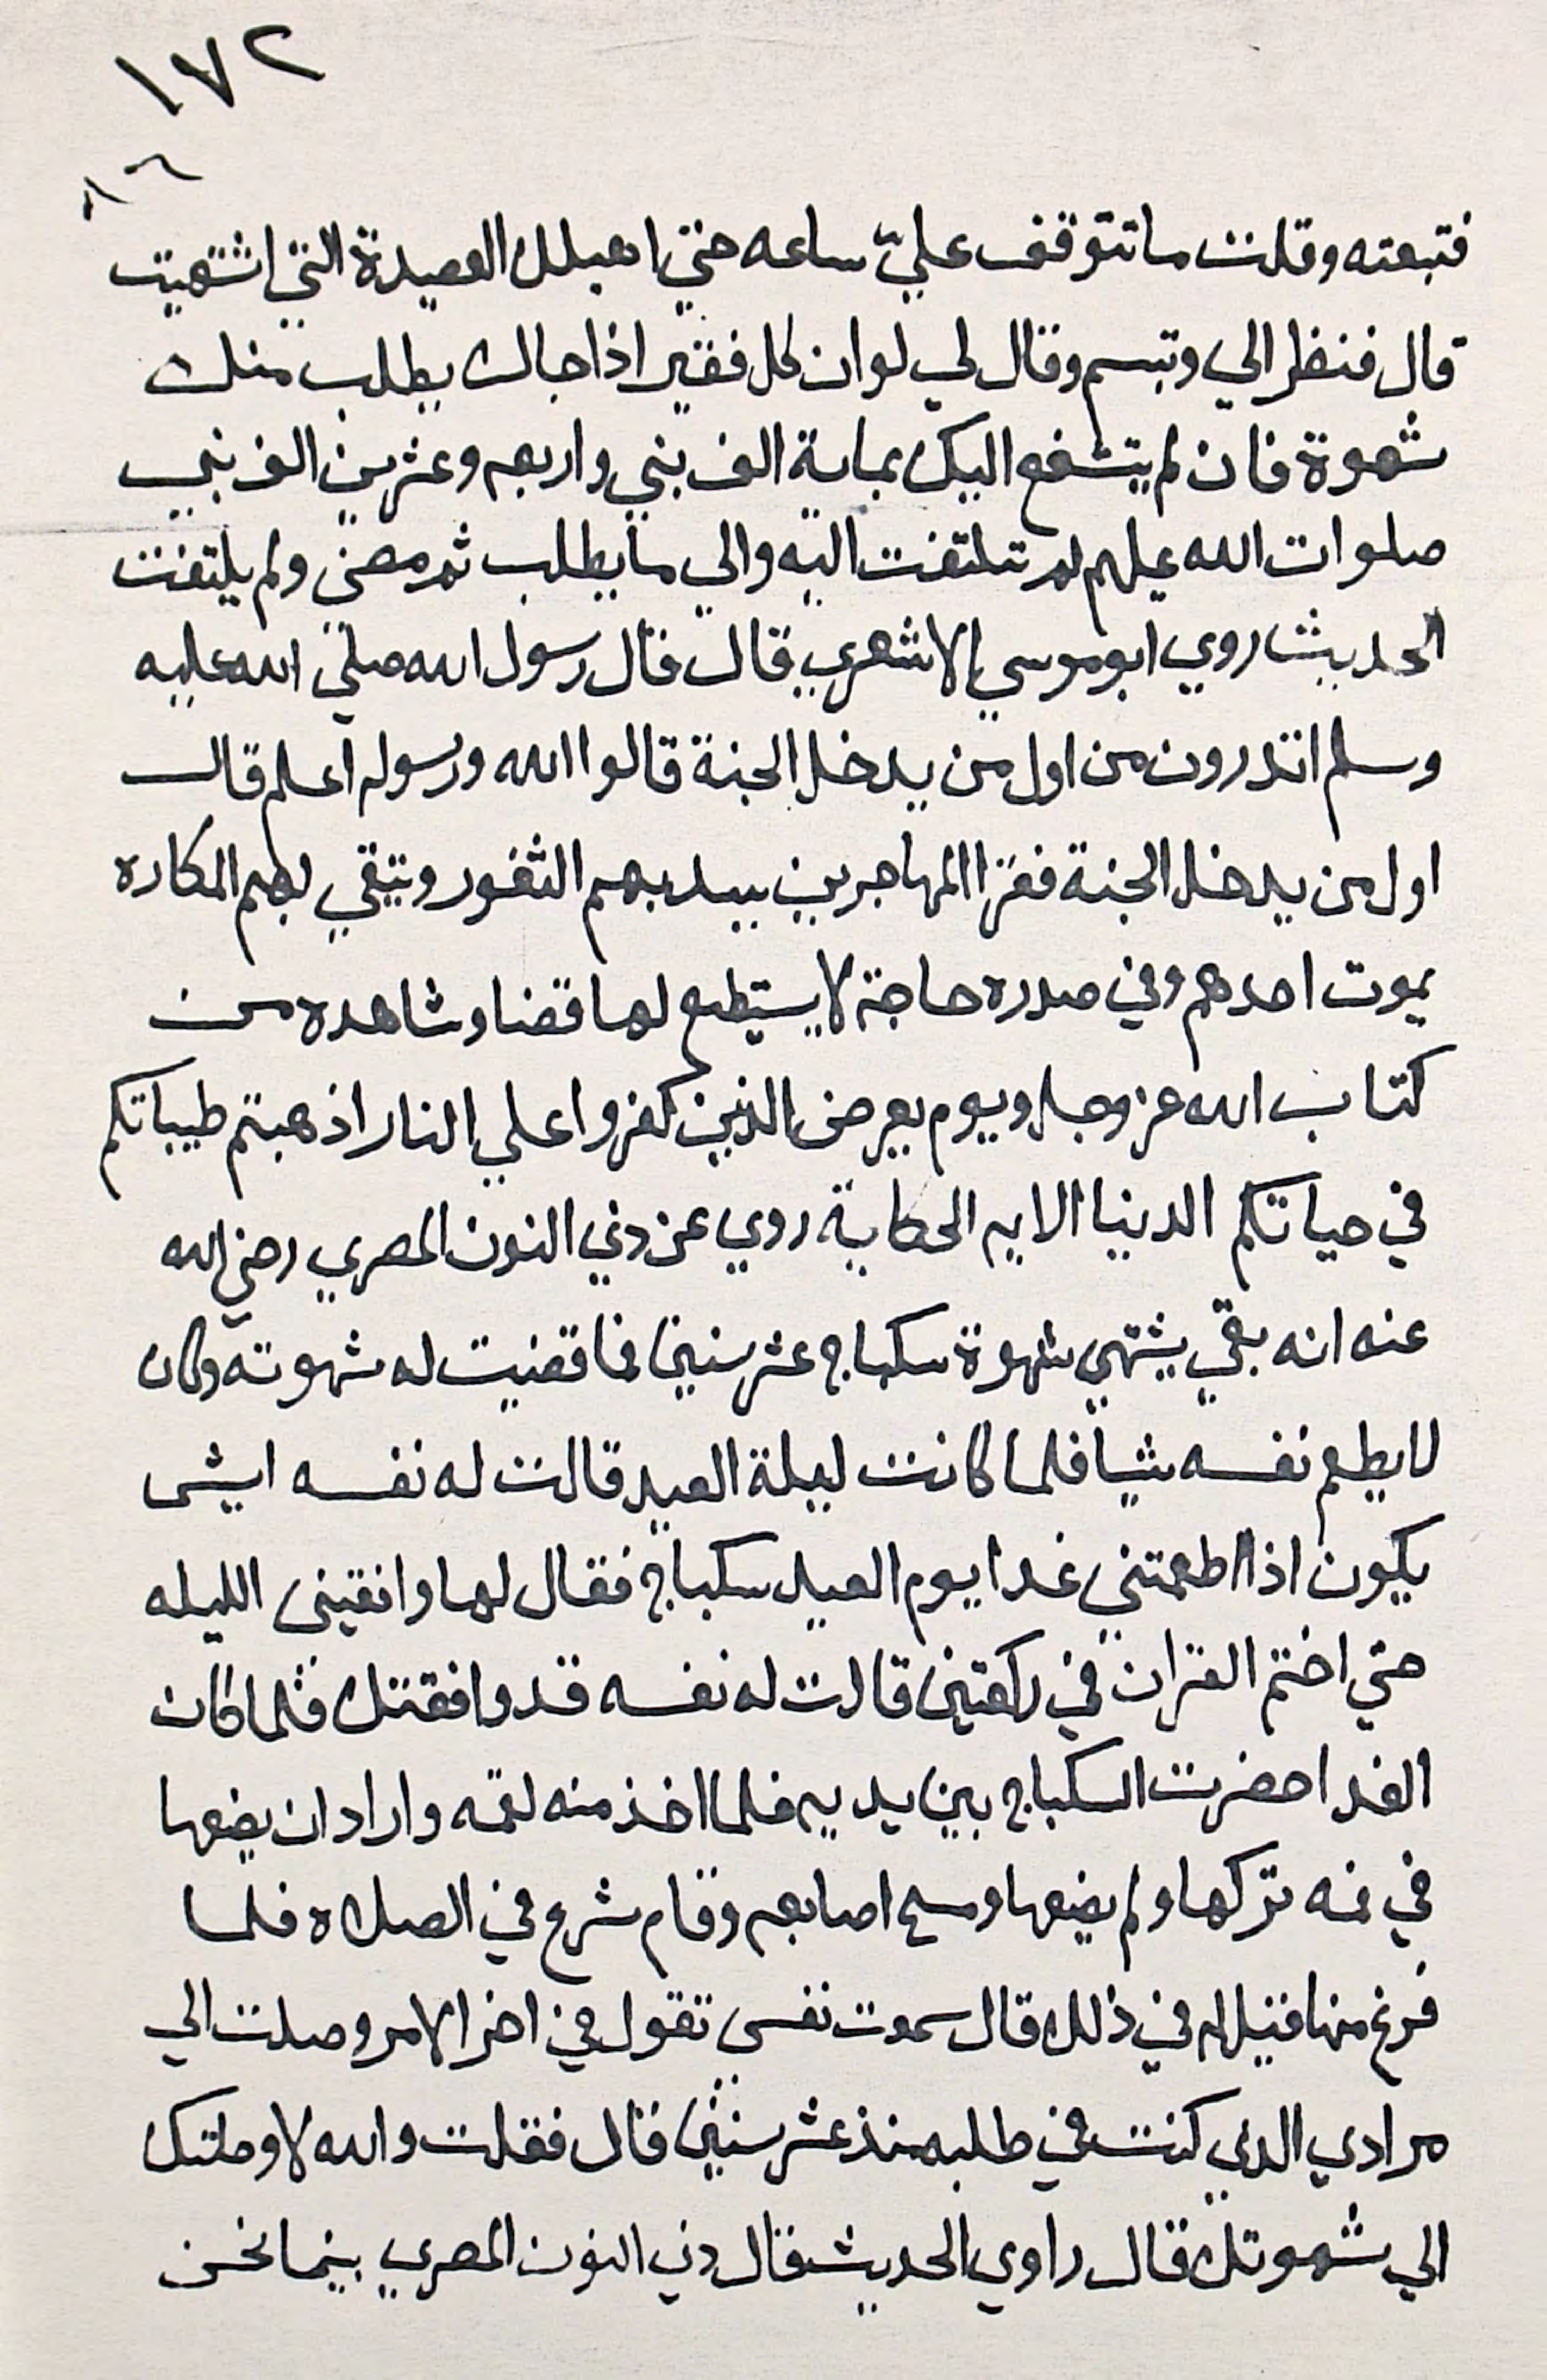 ١٧٢
فتبعته وقلت ما تتوقف عليّ ساعه حتي اهبلك العصيدة التي اشتهيت
قال فنظر الي وتبسم وقال لي لوان كل فقير اذا جاك يطلب منك
شهوة فان لم يتشفع اليك بماية الف نبي واربعه وعشرين الف نبي
صلوات الله عليهم لم تلتفت اليه والي ما يطلب ثم مضي ولم يلتفت
الحديث روي ابو موسي الاشعري قال قال رسول الله صلي الله عليه
وسلم اتدرون من اول من يدخل الجنة قالوا الله ورسوله اعلم قال
اول من يدخل الجنة فقرا المهاجرين يسد بهم الثغور ويتقي بهم المكاره
يموت احدهم وفي صدره حاجة لا يستطيع لها قضا وشاهده من
كتاب الله عز وجل ويوم يعرض الذين كفروا علي النار اذهبتم طيباتكم
في حياتكم الدنيا الايه الحكاية روي عن ذي النون المصري رضي الله
عنه انه بقي يشتهي شهوة سكباج عشر سنين فما قضيت له شهوته وكان
لا يطعم نفسه شيا فلما كانت ليلة العيد قالت له نفسه ايش
يكون اذا اطعمتني غدا يوم العيد سكباج فقال لها وافقيني الليله
حتي اختم القران في ركعتين قالت له نفسه قد وافقتك فلما كان
الغد احضرت السكباج بين يديه فلما اخذ منه لقمه واراد ان يضعها
في فمه تركها ولم يضعها ومسح اصابعه وقام شرع في الصلاة فلما
فرغ منها قيل له في ذلك قال سمعت نفسي تقول في اخر الامر وصلت الي
مرادي الذي كنت في طلبه منذ عشر سنين قال فقلت والله لا وصلتك
الي شهوتك قال راوي الحديث قال ذي النون المصري بينما نحن